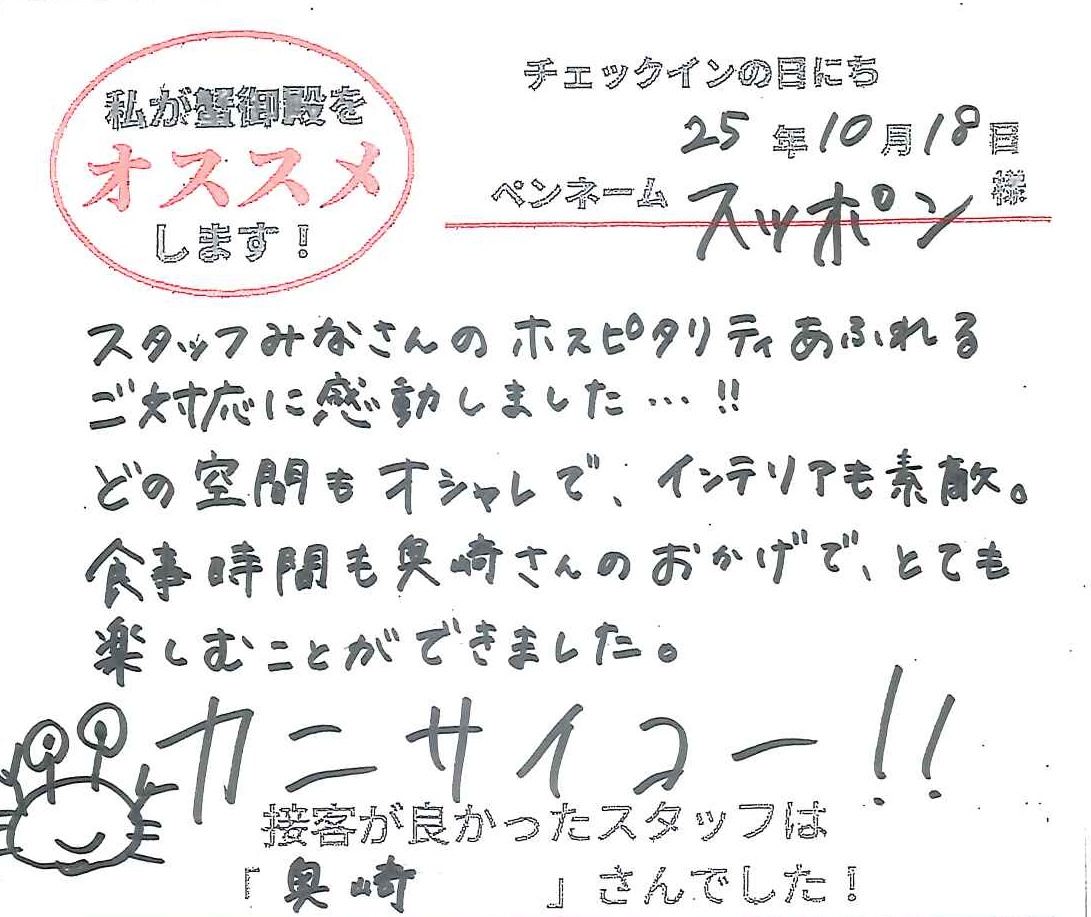 私が蟹御殿を
オススメ
します！
チェックインの日にち
25年10月18日
ペンネーム スッポン 様
スタッフみなさんのホスピタリティあふれる
ご対応に感動しました…!!
どの空間もオシャレで、インテリアも素敵。
食事時間も奥崎さんのおかげで、とても
楽しむことができました。
カニサイコー!!
接客が良かったスタッフは
「奥崎」さんでした！